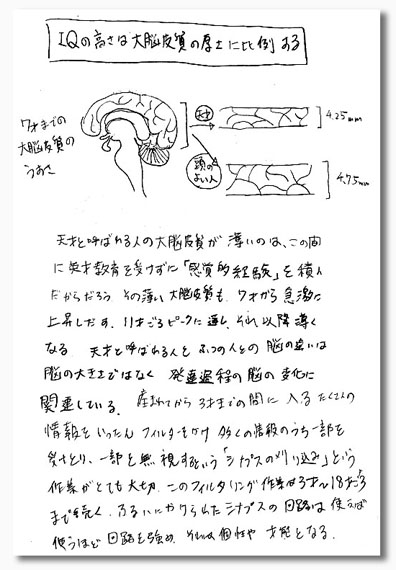 IQの高さは大脳皮質の厚さに比例する
7才までの
大脳皮質の
うすさ
天才
頭の
よい人
4.25mm
4.75mm
天才と呼ばれる人の大脳皮質が薄いのは、この間
に英才教育を受けずに「感覚的経験」を積ん
だからだろう。その薄い大脳皮質も、7才から急激に
上昇しだす。11才ごろピークに達し、それ以降薄く
なる。天才と呼ばれる人と ふつの人との脳の違いは
脳の大きさではなく 発達過程の脳の変化に
関連している。産まれてから3才までの間に入るたくさんの
情報をいったん フィルターをかけ 多くの情報のうち一部を
受けとり、一部を無視するという「シナプスの刈り込み」という
作業がとても大切。このフィルタリング作業は3才〜18才ごろ
まで続く。ふるいにかけられたシナプスの回路は使えば
使うほど回路を強め、それが個性や才能となる。